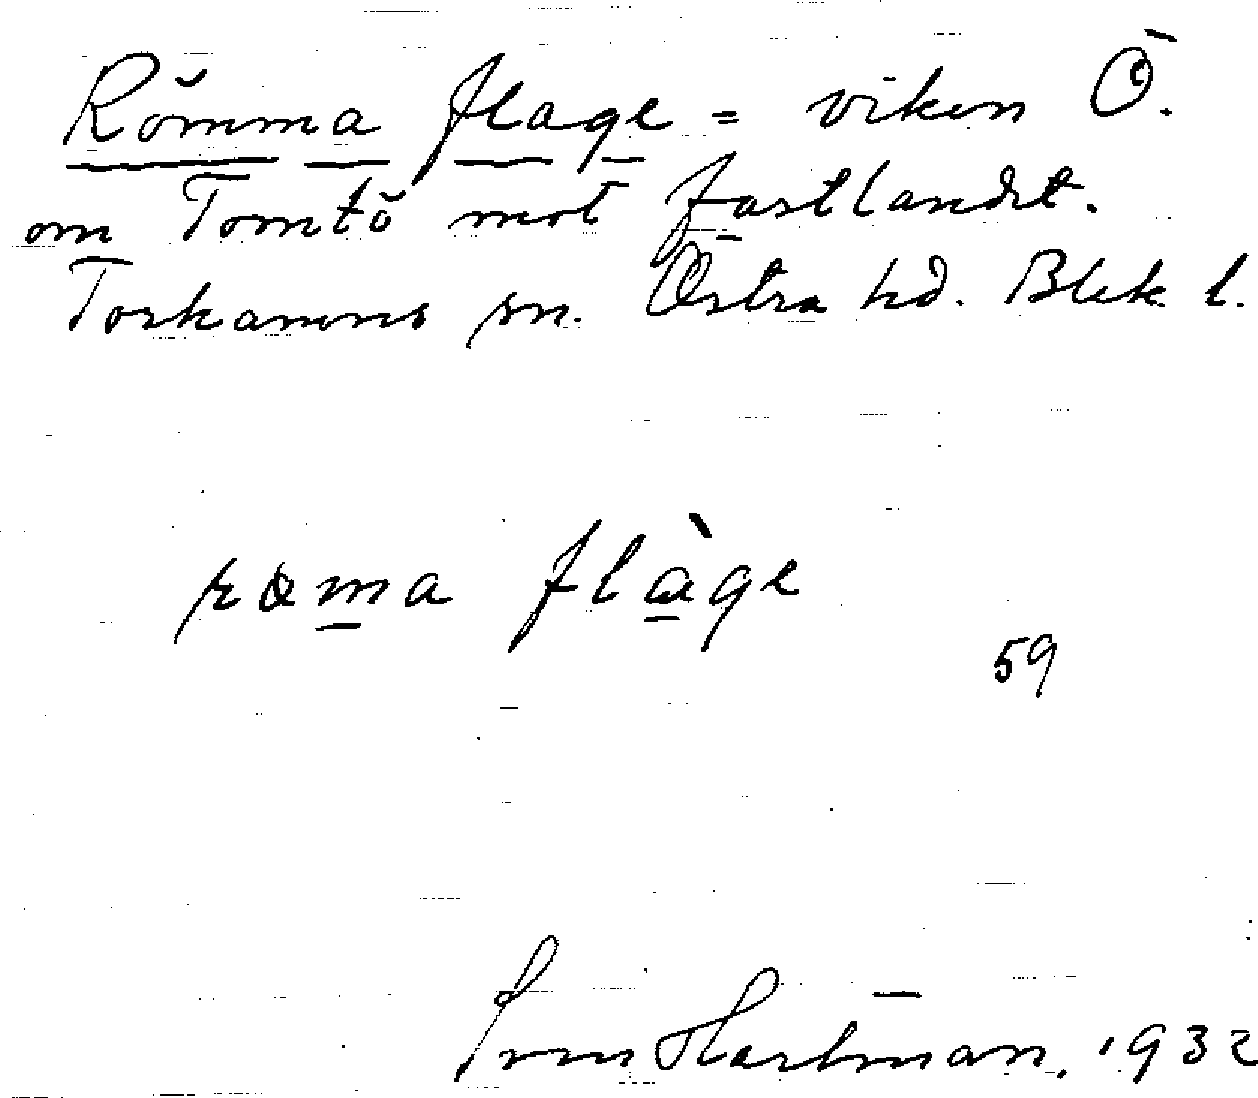 Römma flage = viken Ö.
om Tomtö mot fastlandet.
Torhamns sn. Östra hd. Blek l.
rɷma flàge
59
Sven Hartman. 1932